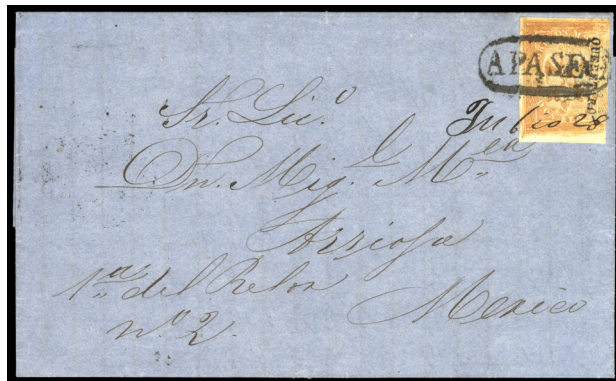 QUERETARO
APASEO
Julio 28
Sr. Lic.º
Dn. Mig. l M.ª
Arrioja
1ª del Relox
nº 2.
Mexico